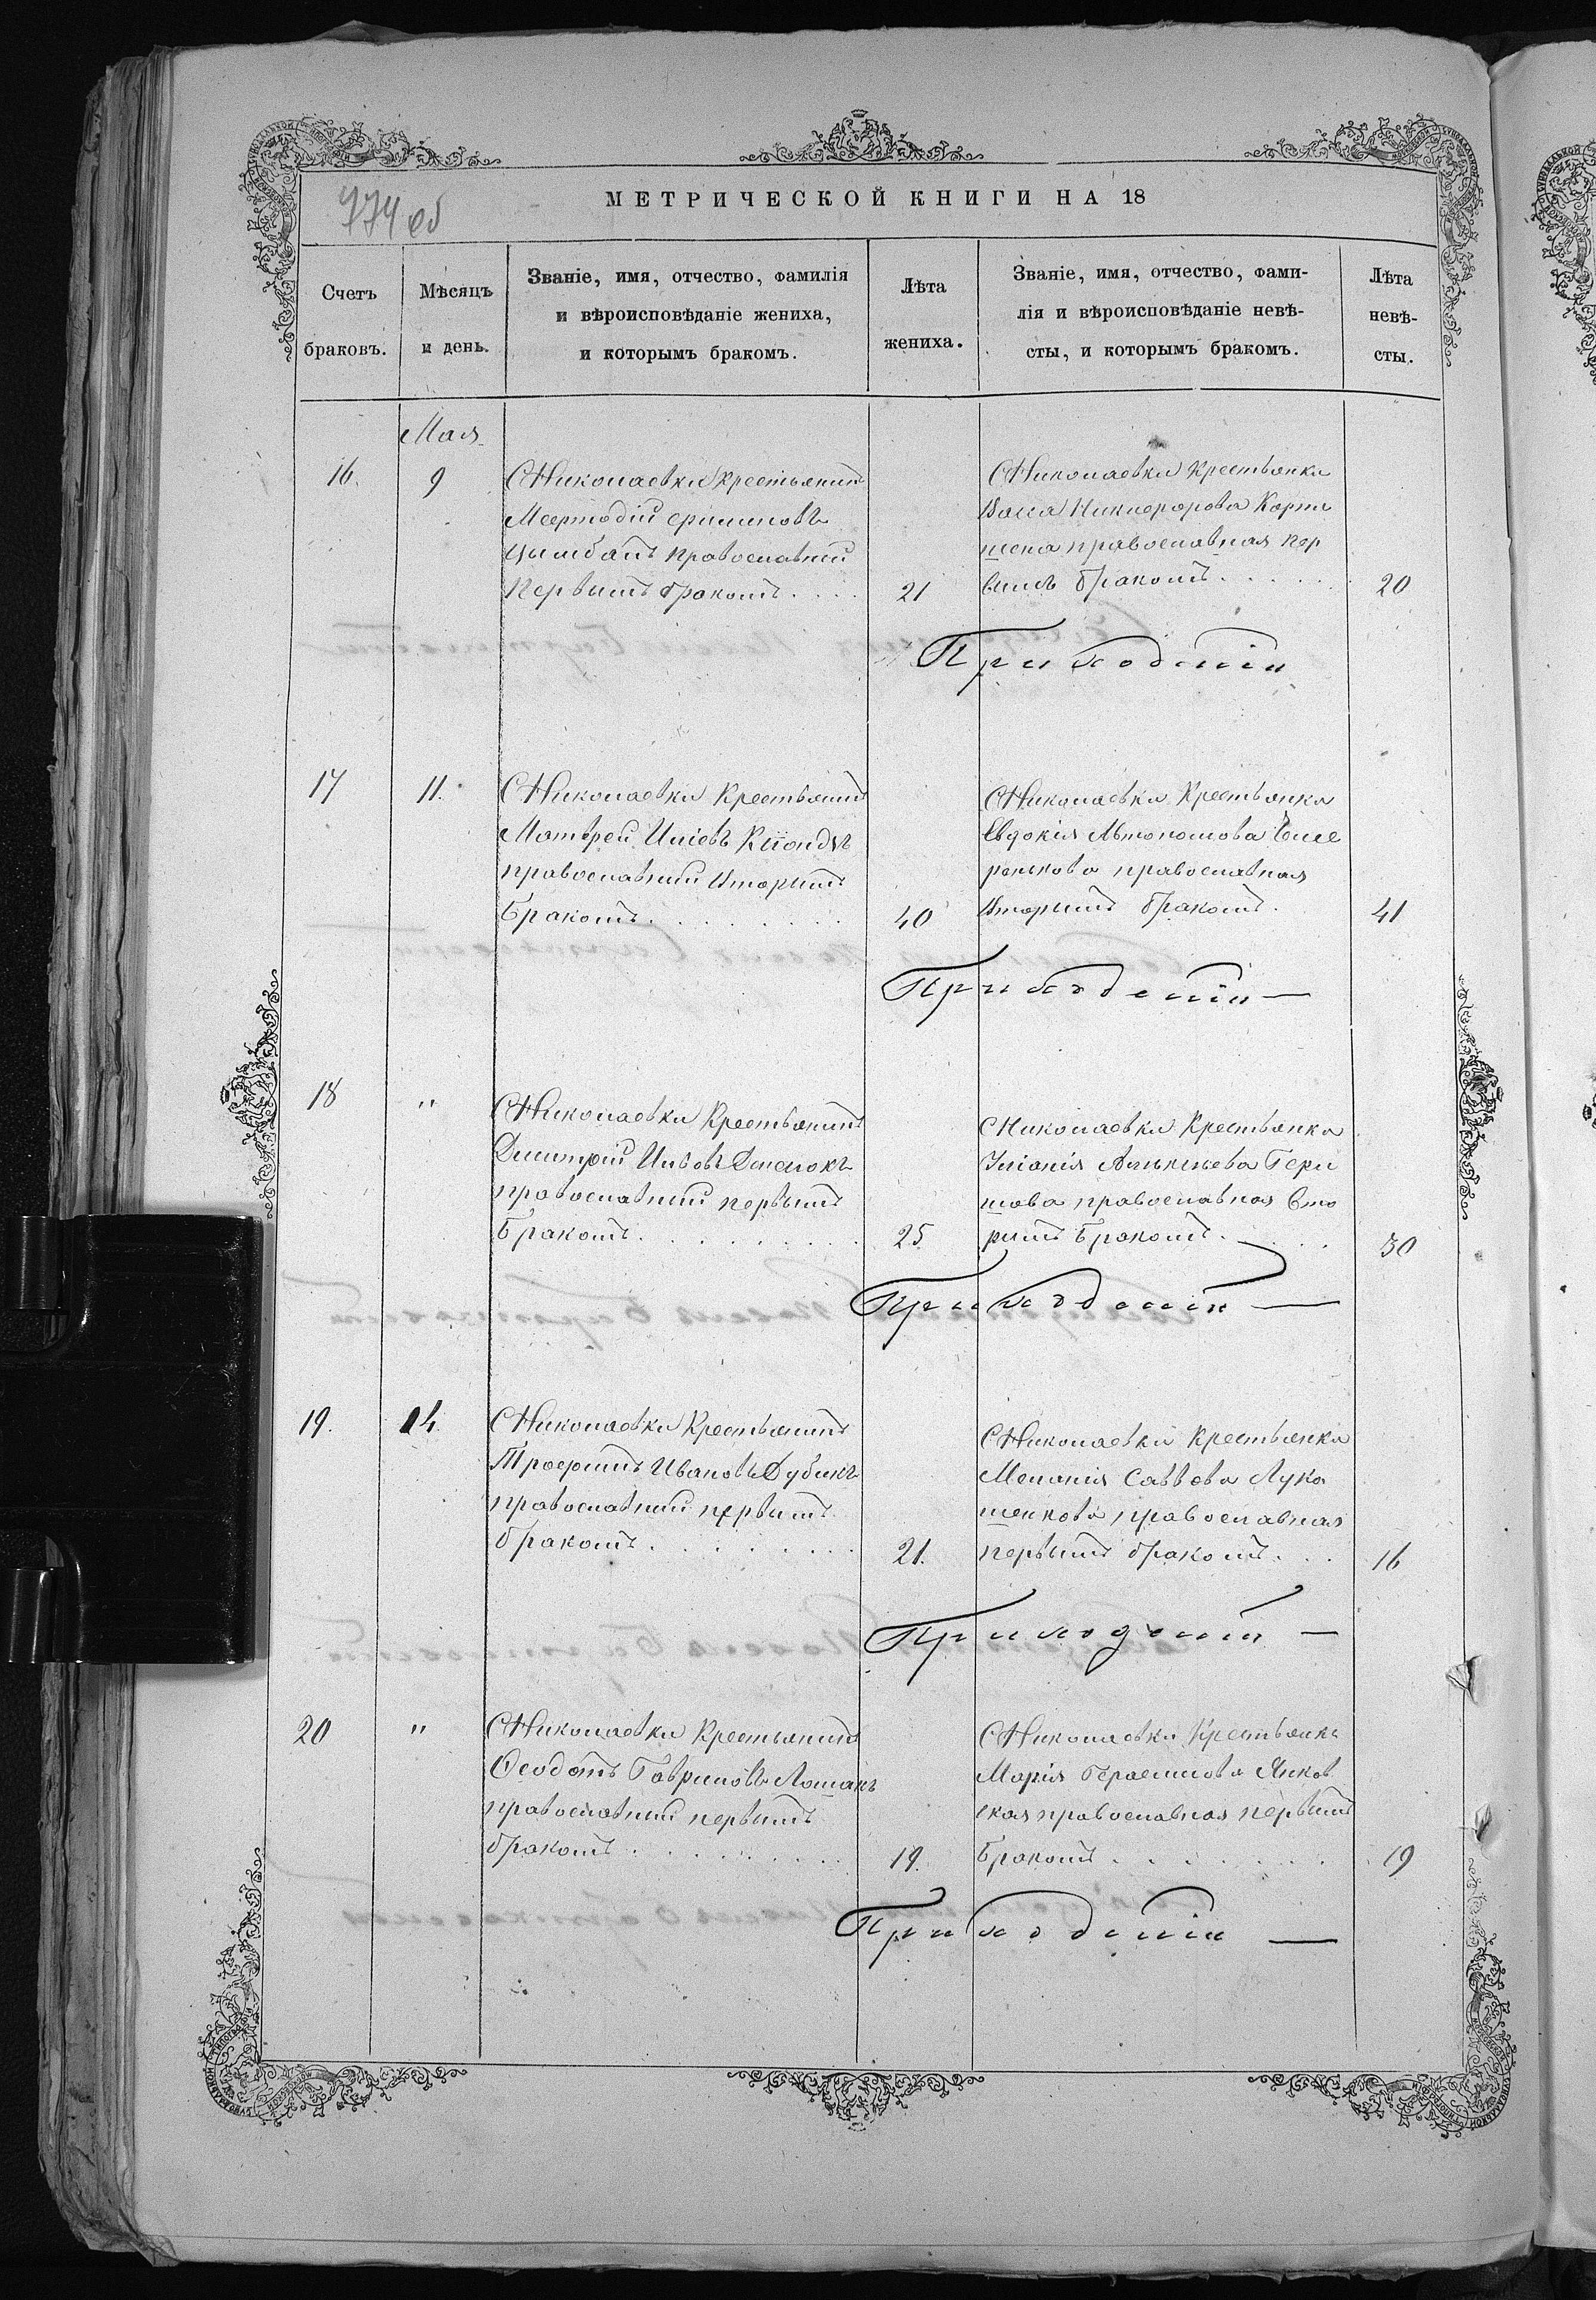 774 об
МЕТРИЧЕСКОЙ КНИГИ НА 18
Счетъ браковъ.
Мѣсяцъ и день.
Званіе, имя, отчество, фамилія
и вѣроисповѣданіе жениха,
и которымъ бракомъ.
Лѣта жениха.
Званіе, имя, отчество, фами-
лія и вѣроисповѣданіе невѣ-
сты, и которымъ бракомъ.
Лѣта невѣ-
сты.
Мая
16.
9
С Николаевки крестьянинъ
Меѳодій
Цимбалъ православный
Первымъ бракомъ....
21
С Николаевки Крестьянка
Васса Никифорова
православная пер
вымъ бракомъ.....
20
17
11.
С Николаевки Крестьянинъ
Матфей Иліевъ
православный Вторымъ
Бракомъ.......
40
С Николаевки Крестьянка
Евдокія Автономова
православная
Вторымъ бракомъ.
41
18
"
С Николаевки Крестьянинъ
Димитрій
православный первымъ
Бракомъ.......
25
С Николаевки Крестьянка
Иуліанія
православная вто
рымъ Бракомъ.....
30
19.
14
С Николаевки Крестьянинъ
Трофимъ Ивановъ Дубикъ
православный первымъ
бракомъ.......
21.
С Николаевки Крестьянка
Меланія Саввова Лука
шенкова православная
первымъ бракомъ...
16
20
"
С Николаевки Крестьянинъ
Ѳеодотъ Гавриловъ Лошакъ
православный первымъ
бракомъ.......
19.
С Николаевки Крестьянка
Марія Герасимова Янков
ская православная первымъ
Бракомъ.......
19